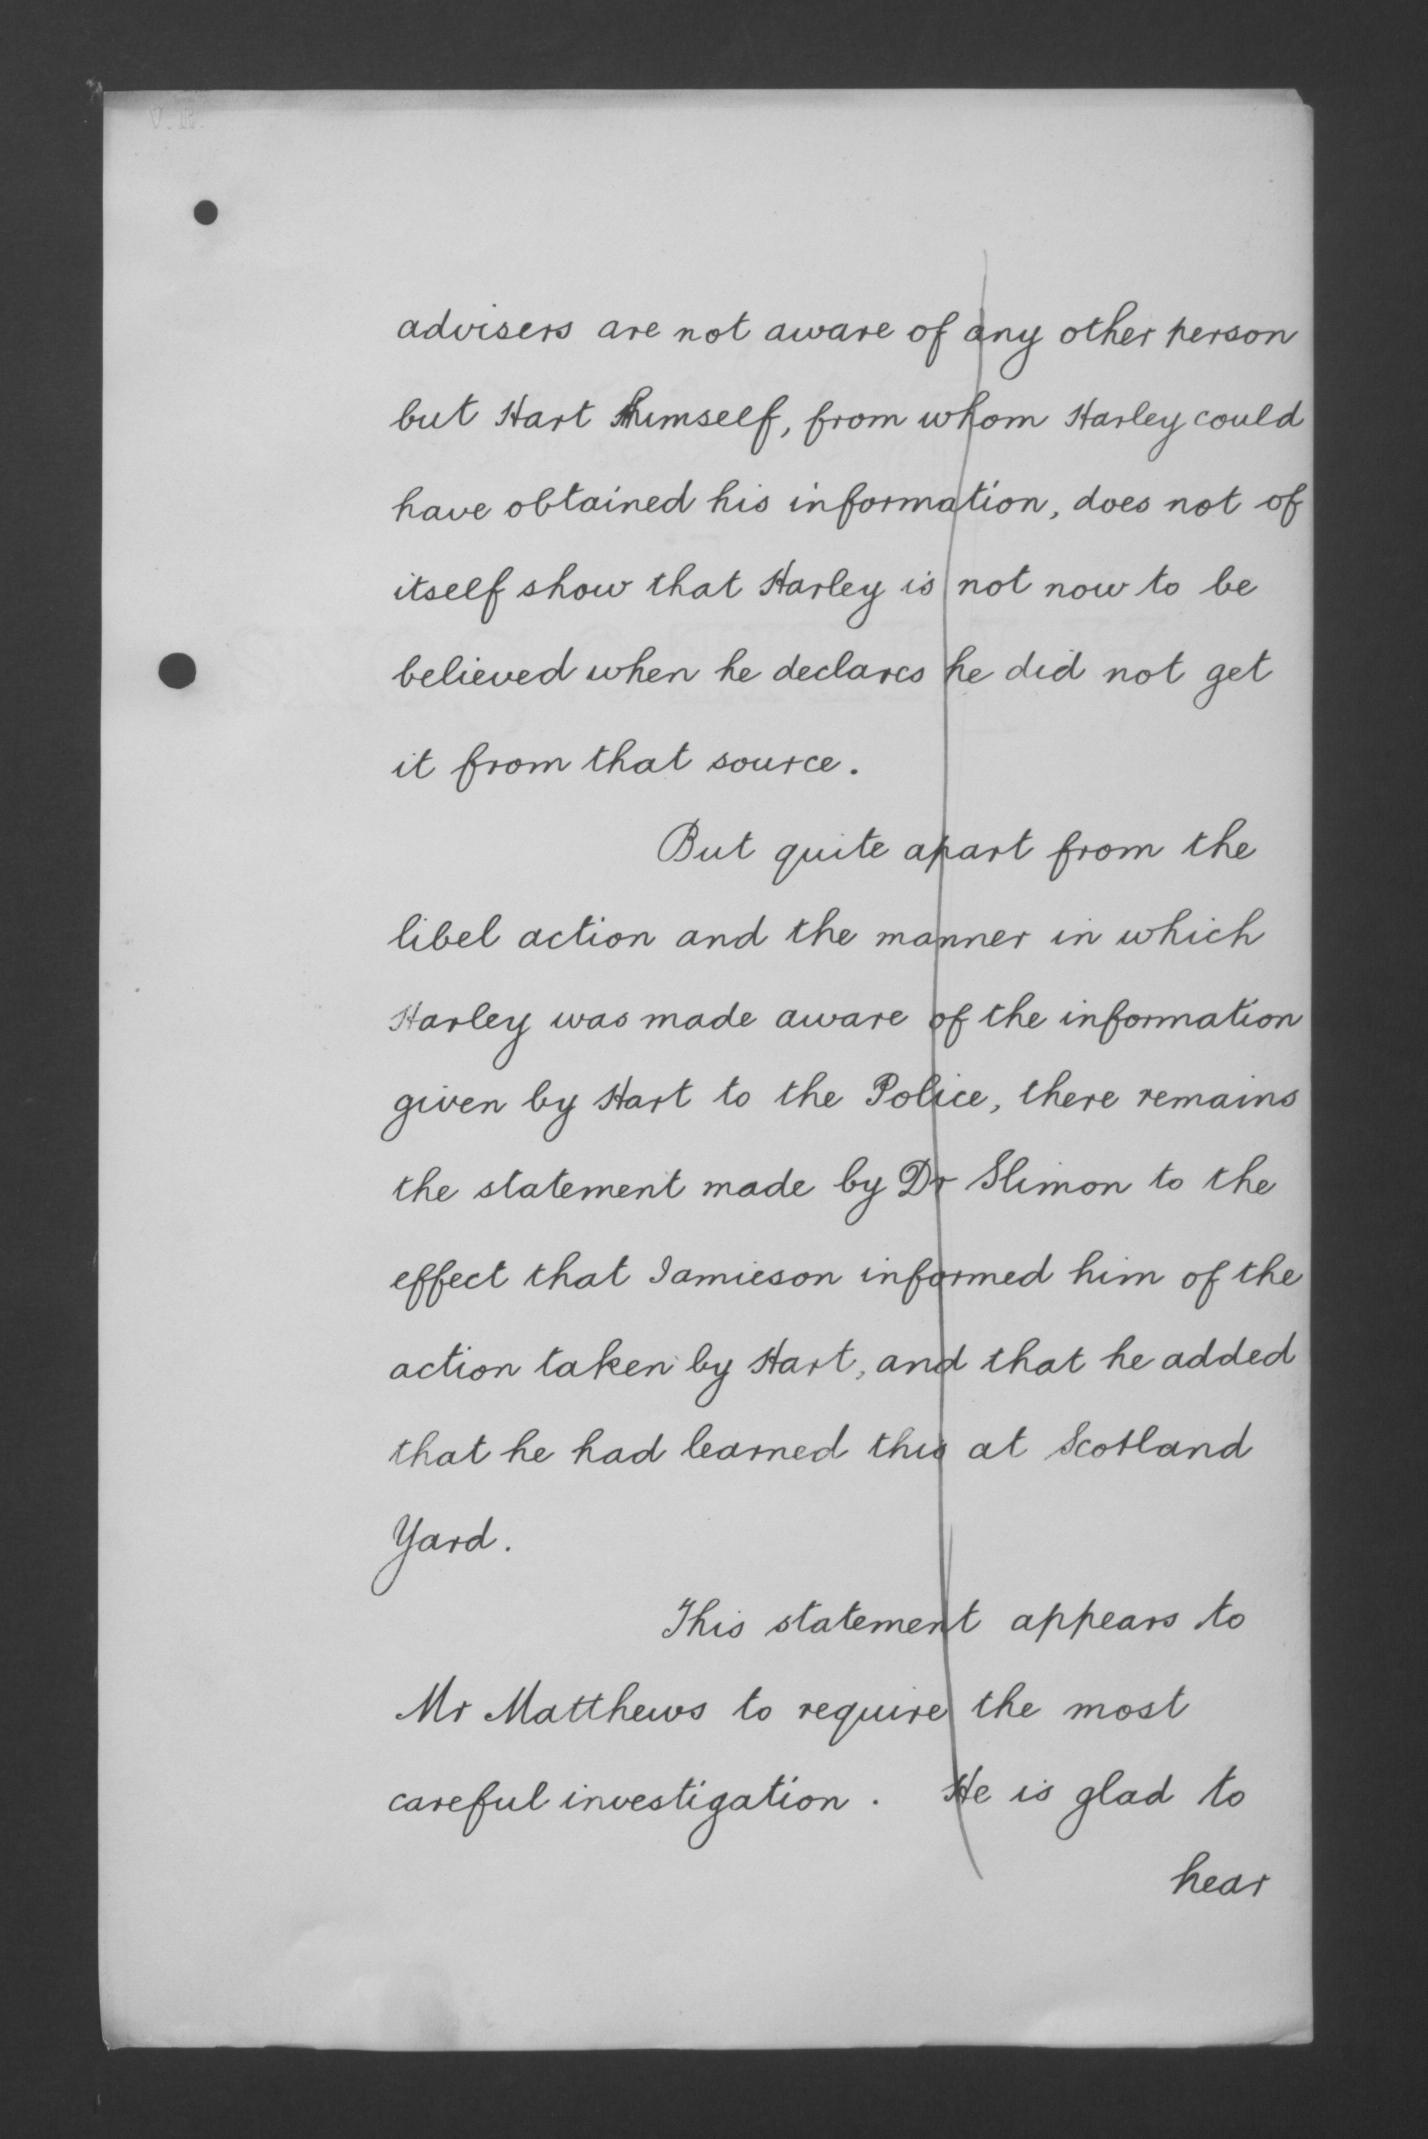 advisers are not aware of any other person
but Hart himself, from whom Harley could
have obtained his information, does not of
itself show that Harley is not now to be
believed when he declares he did not get
it from that source.
But quite apart from the
libel action and the manner in which
Harley was made aware of the information
given by Hart to the Police, there remains
the statement made by Dr Slimon to the
effect that Jamieson informed him of the
action taken by Hart, and that he added
that he had learned this at Scotland
Yard.
This statement appears to
Mr Matthews to require the most
careful investigation. He is glad to
hear